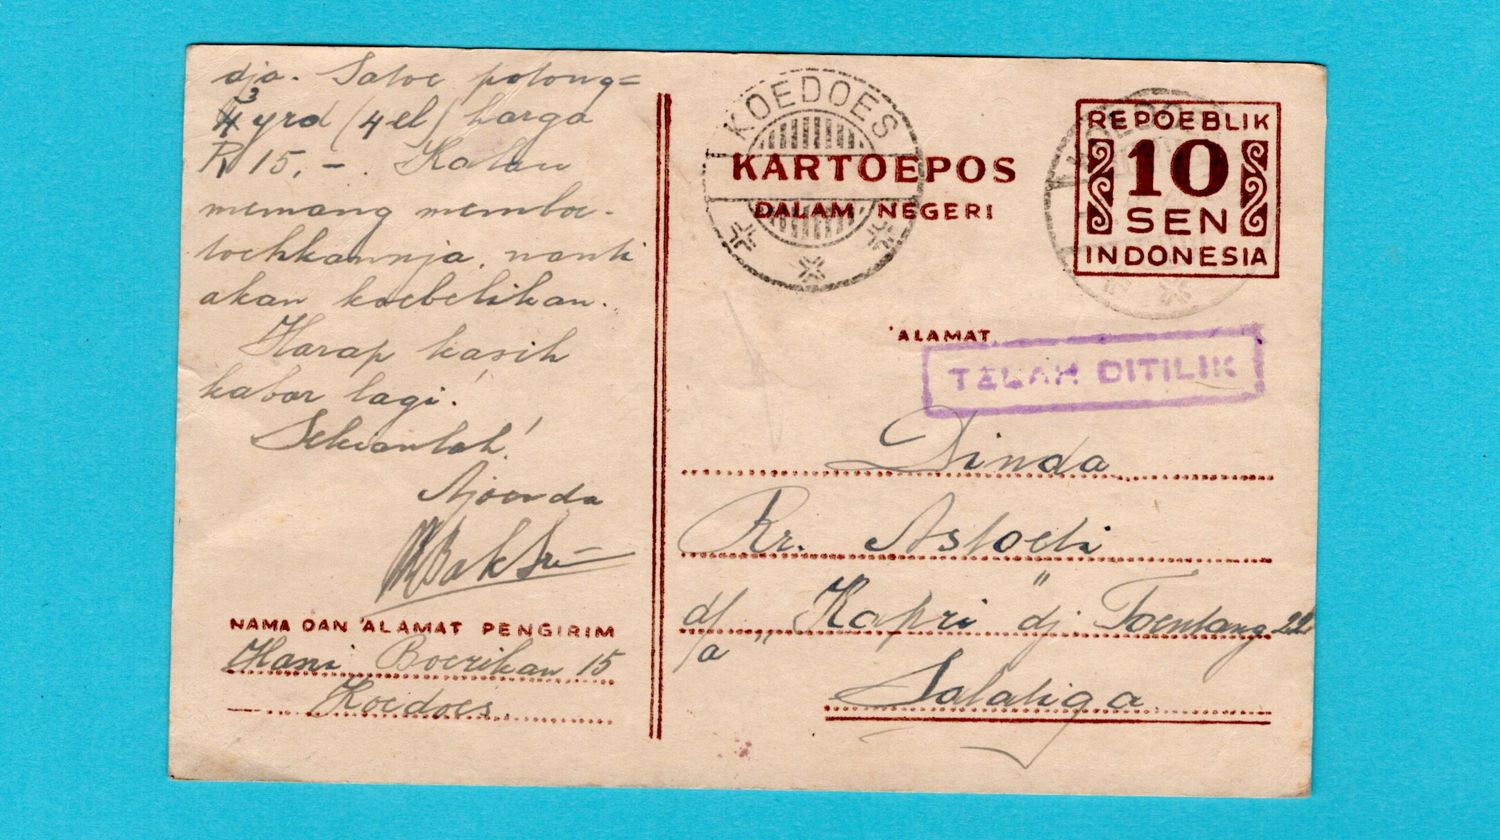 dja. Satoe potong=
3 yrd (4 el) harga
R 15,-. Kalau
memang memboe-
toehkannja, nanti
akan koebelikan.
Harap kasih
kabar lagi!
Sekianlah!
Ajoenda
NAMA DAN ALAMAT PENGIRIM
Hani Boerikan 15
Koedoes.
KOEDOES
KARTOEPOS
DALAM NEGERI
REPOEBLIK
10
SEN
INDONESIA
ALAMAT
TELAH DITILIK
Dinda
Rr. Astoeti
d/a "Kapri" dj. Toentang
Salatiga